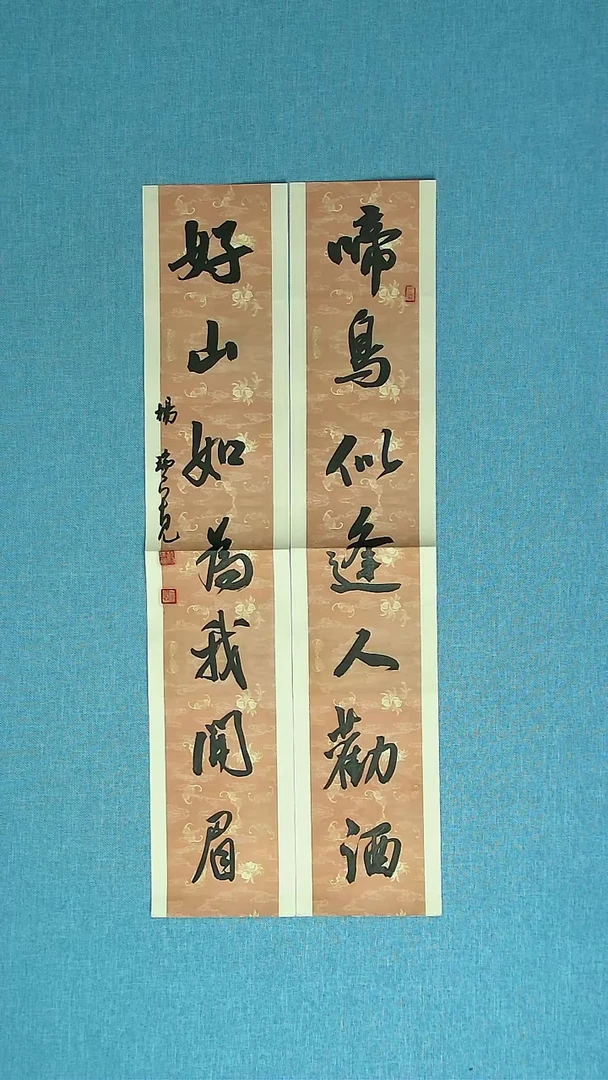 啼鳥似逢人勸酒
好山如為我開眉
楊